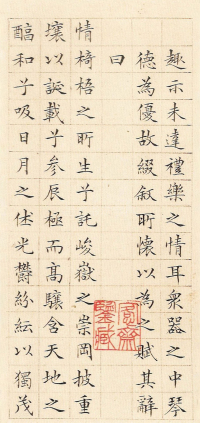 趣亦未達禮樂之情耳衆器之中琴
德為優故綴敘所懷以為之賦其辭
曰
惟椅梧之所生予託峻嶽之崇岡披重
壤以誕載予參辰極而高驤含天地之
醇和予吸日月之休光鬱紛紜以獨茂